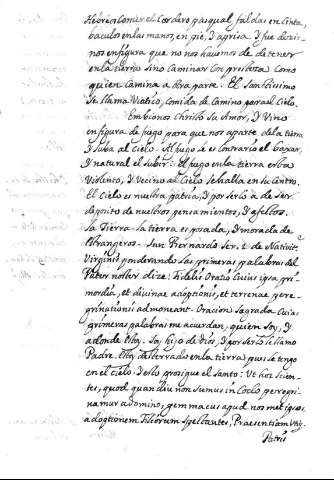 Hebreo Comer el Cordero pasqual, faldas en Cinta,
baculos en las manos, en pie, y aprisa. Y fue dezir-
nos en figura que no nos havemos de detener
en la tierra sino Caminar Con presteza Como
quien Camina a otra parte. El Santissimo
se llama Viatico, Comida de Camino para el Cielo.
Embionos Christo su Amor, y Vino
en figura de fuego para que nos aparte de la tierra
y suba al Cielo. Al fuego le es Contrario el baxar,
y natural el subir: El fuego en la tierra esta
Violento, y Vecino al Cielo se halla en su Centro.
El Cielo es nuestra patria, y por serlo a de ser
deposito de nuestros pensamientos, y afectos.
La tierra es posada, y morada de
estrangeros. San Bernardo Ser. 2. de Nativit.
Virginis ponderando las primeras palabras del
Pater noster dize: Fidelis Oratio Cuius ipsa pri-
mordia, et divinae adoptionis, et terrenae pere-
grinationis admoneant. Oracion Sagrada Cuias
primeras palabras me acuerdan, quien soy, y
a donde estoy. Soy hijo de Dios, y por serlo le llamo
Padre. Estoy desterrado en la tierra pues le tengo
en el cielo. Y esto prosigue el santo: Ut hoc scien-
tes, quod quandiu non sumus in Coelo peregri-
namur a Domino, gemamus apud nosmet ipsos,
adoptionem Filiorum spectantes, Praesentiam Utiq.
Patris